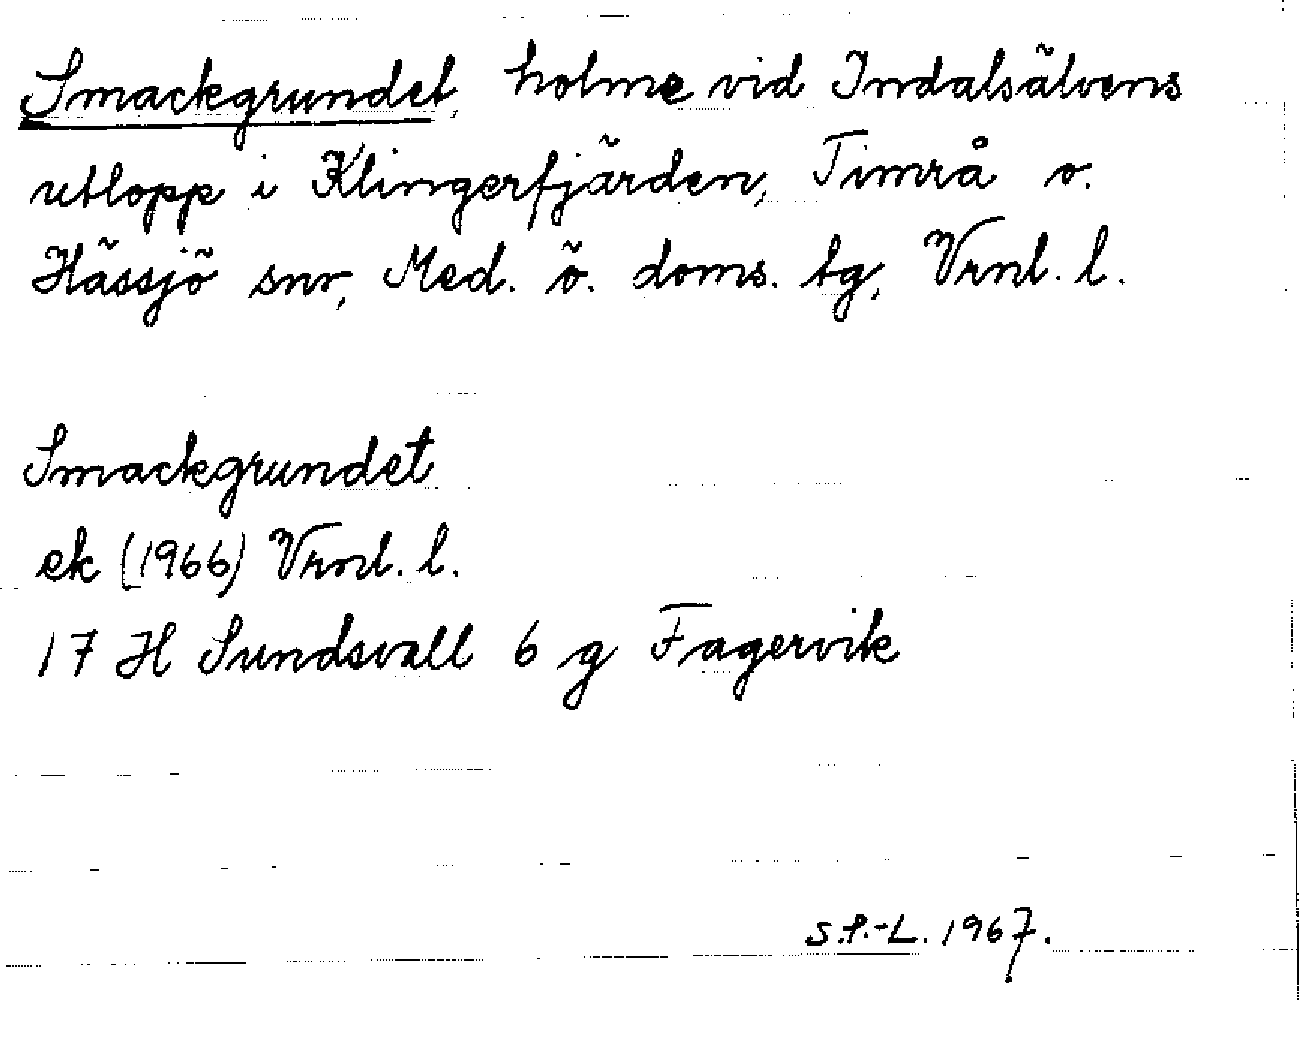 Smackgrundet, holme vid Indalsälvens
utlopp i Klingerfjärden, Timrå o.
Hässjö snr, Med. ö. doms. tg, Vrnl. l.
Smackgrundet
ek (1966) Vrnl. l.
17 H Sundsvall 6 g Fagervik
S.P.-L. 1967.